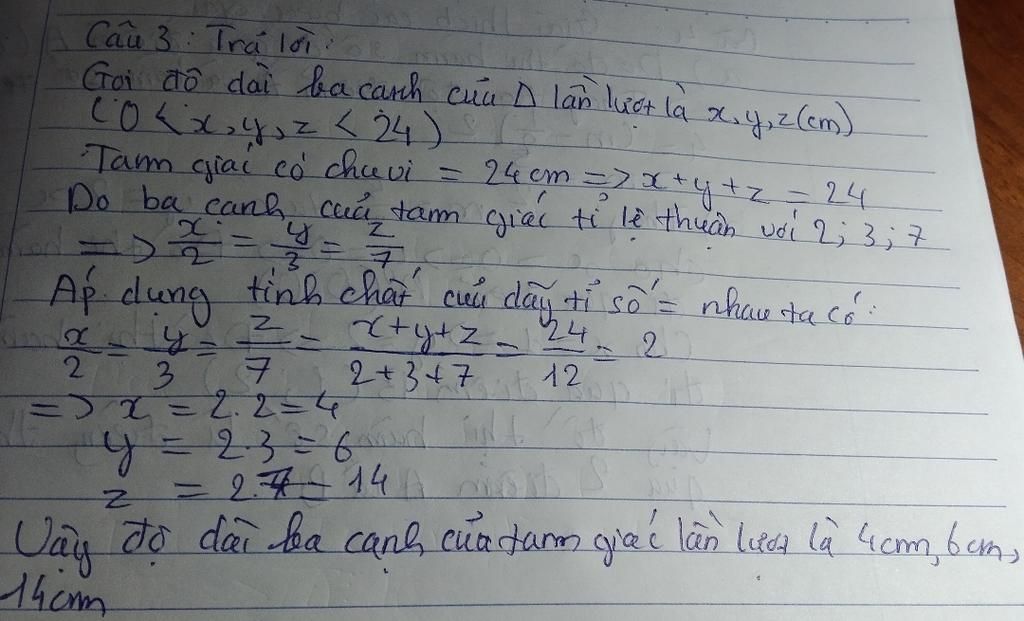 Câu 3: Trả lời:
Gọi độ dài ba cạnh của Δ lần lượt là x, y, z (cm)
(0 < x, y, z < 24)
Tam giác có chu vi = 24 cm => x + y + z = 24
Do ba cạnh của tam giác tỉ lệ thuận với 2; 3; 7
=> x/2 = y/3 = z/7
Áp dụng tính chất của dãy tỉ số = nhau ta có:
x/2 = y/3 = z/7 = (x+y+z)/(2+3+7) = 24/12 = 2
=> x = 2.2 = 4
y = 2.3 = 6
z = 2.7 = 14
Vậy độ dài ba cạnh của tam giác lần lượt là 4cm, 6cm,
14cm